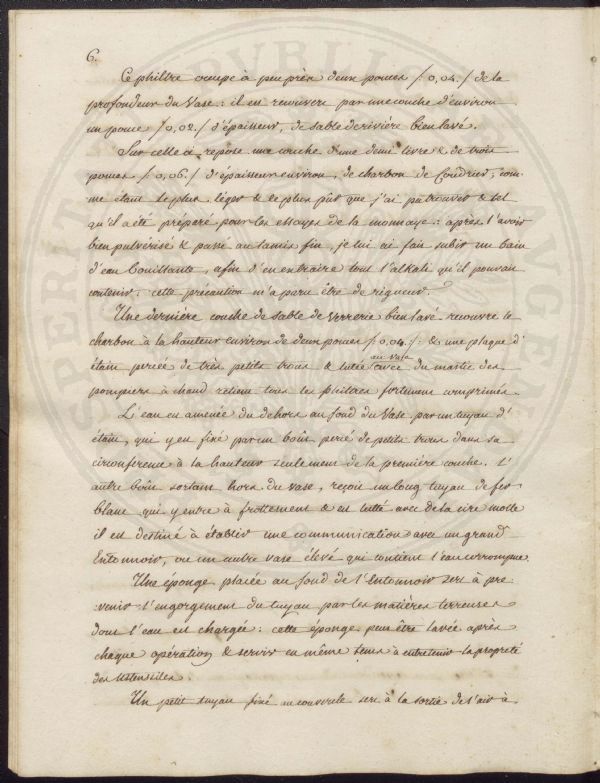 6.
Ce philtre occupe à peu près deux pouces /: 0,04. / de la
profondeur du Vase: il est recouvert par une couche d'environ
un pouce /0,02./ d'épaisseur, de sable de rivière bien lavé.
Sur celle ci repose une couche d'une demi livre & de trois
pouces /: 0,06. / d'épaisseur environ, de charbon de Coudrier, com-
me étant le plus léger & le plus pur que j'ai pu trouver & tel
qu'il a été préparé pour les essayes de la monnaye: après l'avoir
bien pulvérisé & passé au tamis fin, je lui ai fait subir un bain
d'eau bouillante, afin d'en extraire tout l'alkali qu'il pouvait
contenir: cette précaution m'a paru être de rigueur.
Une dernière couche de sable de Verrerie bien lavé recouvre le
charbon à la hauteur environ de deux pouces /: 0,04. / & une plaque d'
étain percée de très petits trous & lutée au vase avec du mastic des
pompiers à chaud retient tous les philtres fortement comprimés.
L'eau est amenée du dehors au fond du Vase par un tuyau d'
étain, qui y est fixé par un bout percé de petits trous dans sa
circonference à la hauteur seulement de la première couche. L'
autre bout sortant hors du vase, reçoit un long tuyau de fer
blanc qui y entre à frottement & est lutté avec de la cire molle
il est destiné à établir une communication avec un grand
Entonnoir, ou un autre vase élevé qui contient l'eau corrompue.
Une éponge placée au fond de l'Entonnoir sert à pre
venir l'engorgement du tuyau par les matières terreuses
dont l'eau est chargée: cette éponge peut être lavée après
chaque opération & servir en même tems à entretenir la propreté
des ustensiles.
Un petit tuyau fixé au couvercle sert à la sortie de l'air à